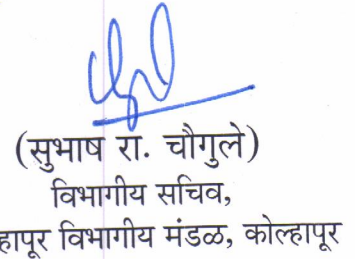 (सुभाष रा. चौगुले)
विभागीय सचिव,
हापूर विभागीय मंडळ, कोल्हापूर